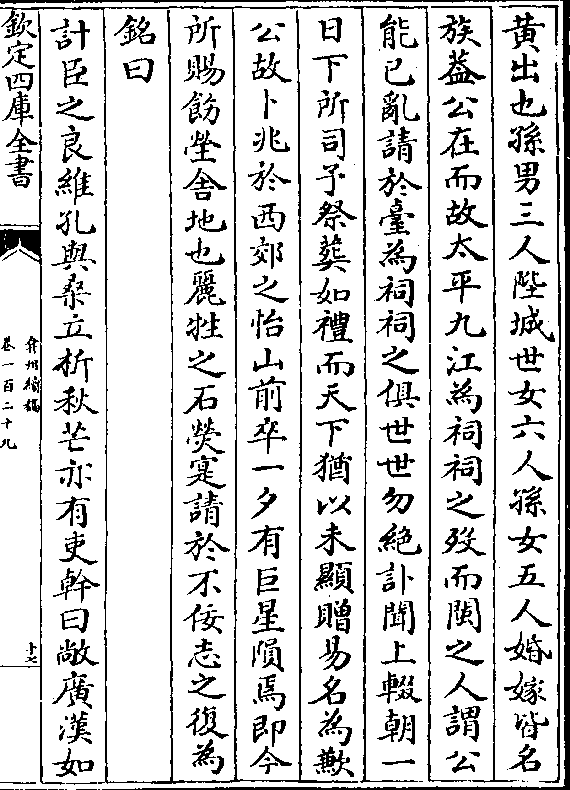 黄出也孫男三人陛城世女六人孫女五人婚嫁皆名
族葢公在而故太平九江為祠祠之殁而閩之人謂公
能已亂請於臺為祠祠之俱世世勿絶訃聞上輟朝一
日下所司予祭葬如禮而天下猶以未顯贈易名為歉
公故卜兆於西郊之怡山前卒一夕有巨星隕焉即今
所賜飭塋舍地也麗牲之石熒寔請於不佞志之復為
銘曰
計臣之良維孔與桑立析秋芒亦有吏幹曰敞廣漢如
欽定四庫全書
弇州續稿
卷一百二十九
十七